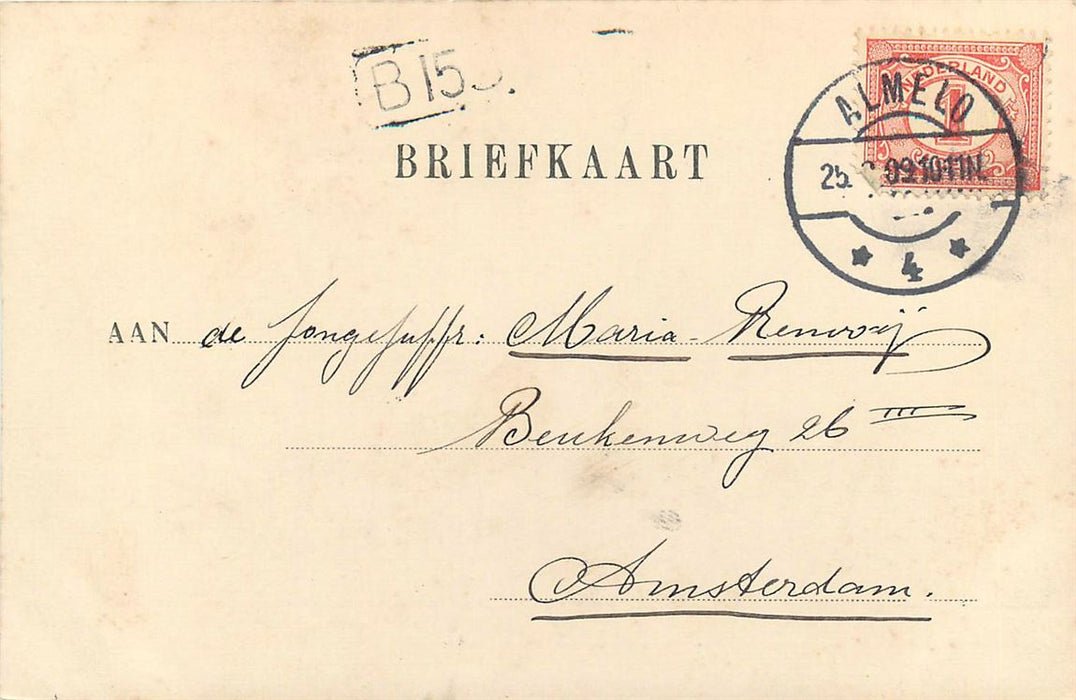 B 15
BRIEFKAART
NEDERLAND
1
ALMELO
25. 09.10-11N.
4
AAN de Jongejuffr: Maria Renooij
Beukenweg 26 III
Amsterdam.